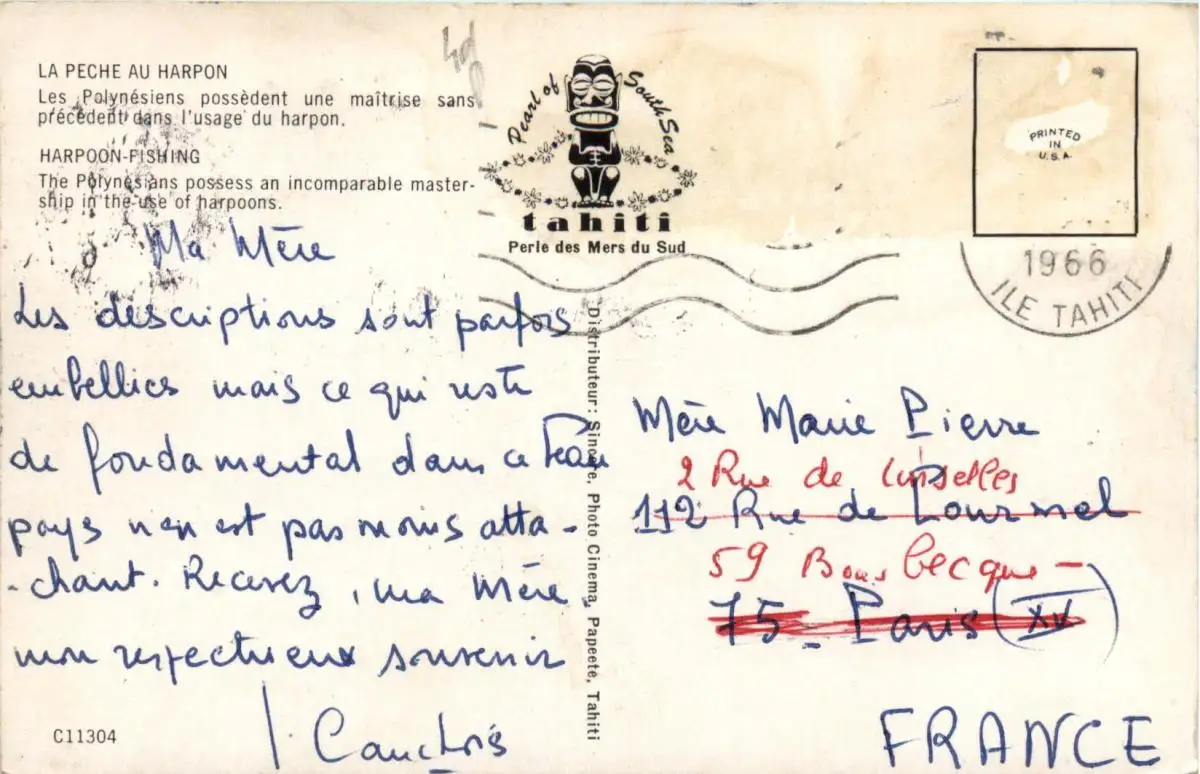 LA PECHE AU HARPON
Les Polynésiens possèdent une maîtrise sans
précédent dans l'usage du harpon.
HARPOON-FISHING
The Polynesians possess an incomparable master-
ship in the use of harpoons.
Pearl of South Sea
tahiti
Perle des Mers du Sud
PRINTED
IN
U.S.A.
1966
ILE TAHITI
Ma Mère
Les descriptions sont parfois
embellies mais ce qui reste
de fondamental dans ce beau
pays n'en est pas moins atta-
-chant. Recevez, ma Mère,
mon respectueux souvenir
Distributeur: Sincère, Photo Cinema, Papeete, Tahiti
Mère Marie Pierre
2 Rue de
112 Rue de Lourmel
59 Bousbecque-
75 - Paris (XV)
FRANCE
C11304